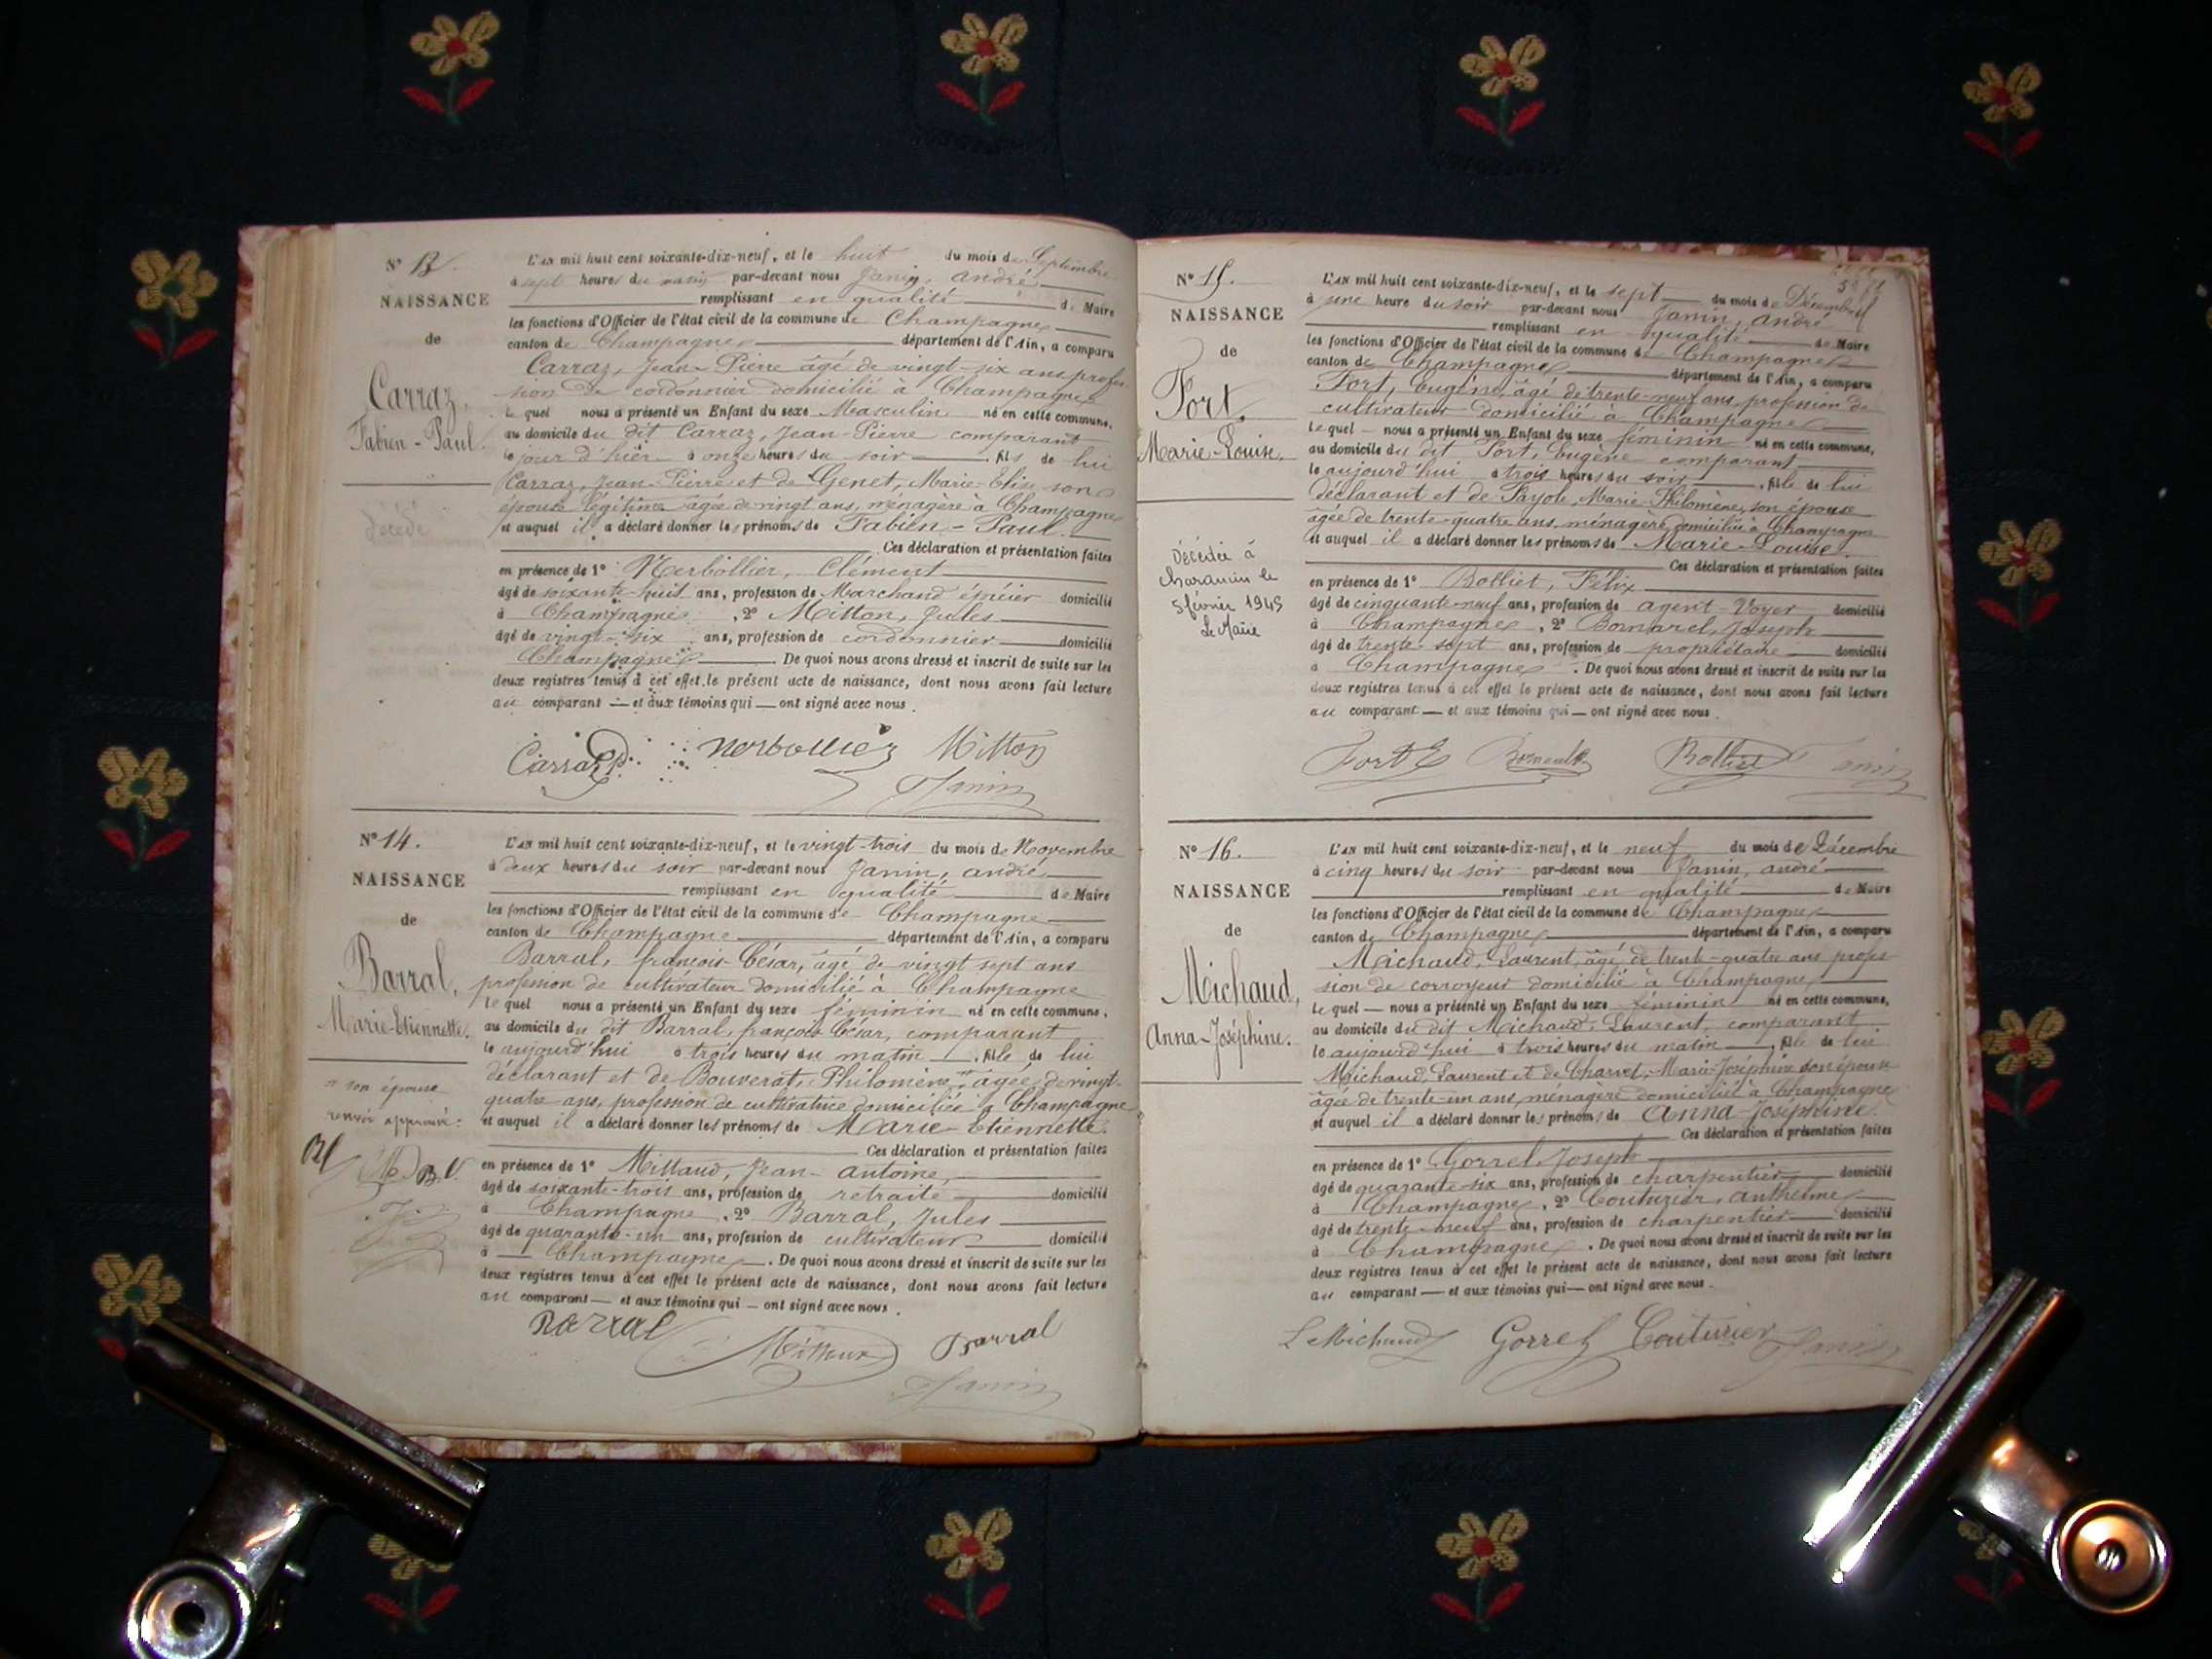 N° 13.
NAISSANCE
de
Carraz,
Fabien-Paul.
décédé
L'AN mil huit cent soixante-dix-neuf, et le huit du mois de Septembre
à sept heures du matin par-devant nous Janin, André
remplissant en qualité de Maire
les fonctions d'Officier de l'état civil de la commune de Champagne
canton de Champagne département de l'Ain, a comparu
Carraz, Jean-Pierre âgé de vingt-six ans profes-
sion de cordonnier domicilié à Champagne
le quel nous a présenté un Enfant du sexe Masculin né en cette commune,
au domicile du dit Carraz, Jean-Pierre comparant
le jour d'hier à onze heures du soir, fils de lui
Carraz, Jean-Pierre et de Genet, Marie-Elise son
épouse légitime âgée de vingt ans, ménagère à Champagne
et auquel il a déclaré donner les prénoms de Fabien-Paul.
Ces déclaration et présentation faites
en présence de 1° Nerbollier, Clément
âgé de soixante-huit ans, profession de Marchand épicier domicilié
à Champagne, 2° Mitton, Jules
âgé de vingt-six ans, profession de cordonnier domicilié
Champagne. De quoi nous avons dressé et inscrit de suite sur les
deux registres tenus à cet effet le présent acte de naissance, dont nous avons fait lecture
au comparant — et aux témoins qui — ont signé avec nous.
Carraz nerbollier Mitton
Janin
N° 14.
NAISSANCE
de
Barral,
Marie-Etiennette.
son épouse
renvoi approuvé:
B.
L'AN mil huit cent soixante-dix-neuf, et le vingt-trois du mois de Novembre
à deux heures du soir par-devant nous Janin, andré
remplissant en qualité de Maire
les fonctions d'Officier de l'état civil de la commune de Champagne
canton de Champagne département de l'Ain, a comparu
Barral, françois-César, âgé de vingt sept ans
profession de cultivateur domicilié à Champagne
le quel nous a présenté un Enfant du sexe féminin né en cette commune,
au domicile du dit Barral, françois César, comparant
le aujourd'hui à trois heures du matin, fille de lui
déclarant et de Bouverat, Philomène, âgée de vingt-
quatre ans, profession de cultivatrice domiciliée à Champagne
et auquel il a déclaré donner les prénoms de Marie-Etiennette.
Ces déclaration et présentation faites
en présence de 1° Millaud, Jean-antoine,
âgé de soixante-trois ans, profession de retraité domicilié
à Champagne, 2° Barral, Jules
âgé de quarante-un ans, profession de cultivateur domicilié
à Champagne. De quoi nous avons dressé et inscrit de suite sur les
deux registres tenus à cet effet le présent acte de naissance, dont nous avons fait lecture
au comparant — et aux témoins qui — ont signé avec nous.
Barral Barral
Janin
N° 15.
NAISSANCE
de
Fort,
Marie-Louise.
Décédée à
Charancin le
5 février 1945
Le Maire
L'AN mil huit cent soixante-dix-neuf, et le sept du mois de Décembre
à une heure du soir par-devant nous Janin, andré
remplissant en qualité de Maire
les fonctions d'Officier de l'état civil de la commune de Champagne
canton de Champagne département de l'Ain, a comparu
Fort, Eugène, âgé de trente-neuf ans, profession de
cultivateur domicilié à Champagne
le quel — nous a présenté un Enfant du sexe féminin né en cette commune,
au domicile du dit Fort, Eugène comparant
le aujourd'hui à trois heures du soir, fille de lui
déclarant et de Payote, Marie-Philomène, son épouse
âgée de trente-quatre ans, ménagère, domiciliée à Champagne
et auquel il a déclaré donner les prénoms de Marie-Louise.
Ces déclaration et présentation faites
en présence de 1° Bolliet, Félix
âgé de cinquante-neuf ans, profession de agent-Voyer domicilié
à Champagne, 2° Bornarel, Joseph
âgé de trente-sept ans, profession de propriétaire domicilié
à Champagne. De quoi nous avons dressé et inscrit de suite sur les
deux registres tenus à cet effet le présent acte de naissance, dont nous avons fait lecture
au comparant — et aux témoins qui — ont signé avec nous.
Fort E Bolliet Janin
N° 16.
NAISSANCE
de
Michaud,
Anna-Joséphine.
L'AN mil huit cent soixante-dix-neuf, et le neuf du mois de Décembre
à cinq heures du soir par-devant nous Janin, andré
remplissant en qualité de Maire
les fonctions d'Officier de l'état civil de la commune de Champagne
canton de Champagne département de l'Ain, a comparu
Michaud, Laurent, âgé de trente-quatre ans profes-
sion de corroyeur domicilié à Champagne
le quel — nous a présenté un Enfant du sexe féminin né en cette commune,
au domicile du dit Michaud, Laurent, comparant
le aujourd'hui à trois heures du matin, fille de lui
Michaud, Laurent et de Charvet, Marie-Joséphine son épouse
âgée de trente-un ans, ménagère domiciliée à Champagne
et auquel il a déclaré donner les prénoms de Anna-Joséphine.
Ces déclaration et présentation faites
en présence de 1° Gorrel, Joseph
âgé de quarante-six ans, profession de charpentier domicilié
à Champagne, 2° Couturier, anthelme
âgé de trente-neuf ans, profession de charpentier domicilié
à Champagne. De quoi nous avons dressé et inscrit de suite sur les
deux registres tenus à cet effet le présent acte de naissance, dont nous avons fait lecture
au comparant — et aux témoins qui — ont signé avec nous.
L Michaud Gorrel Couturier Janin